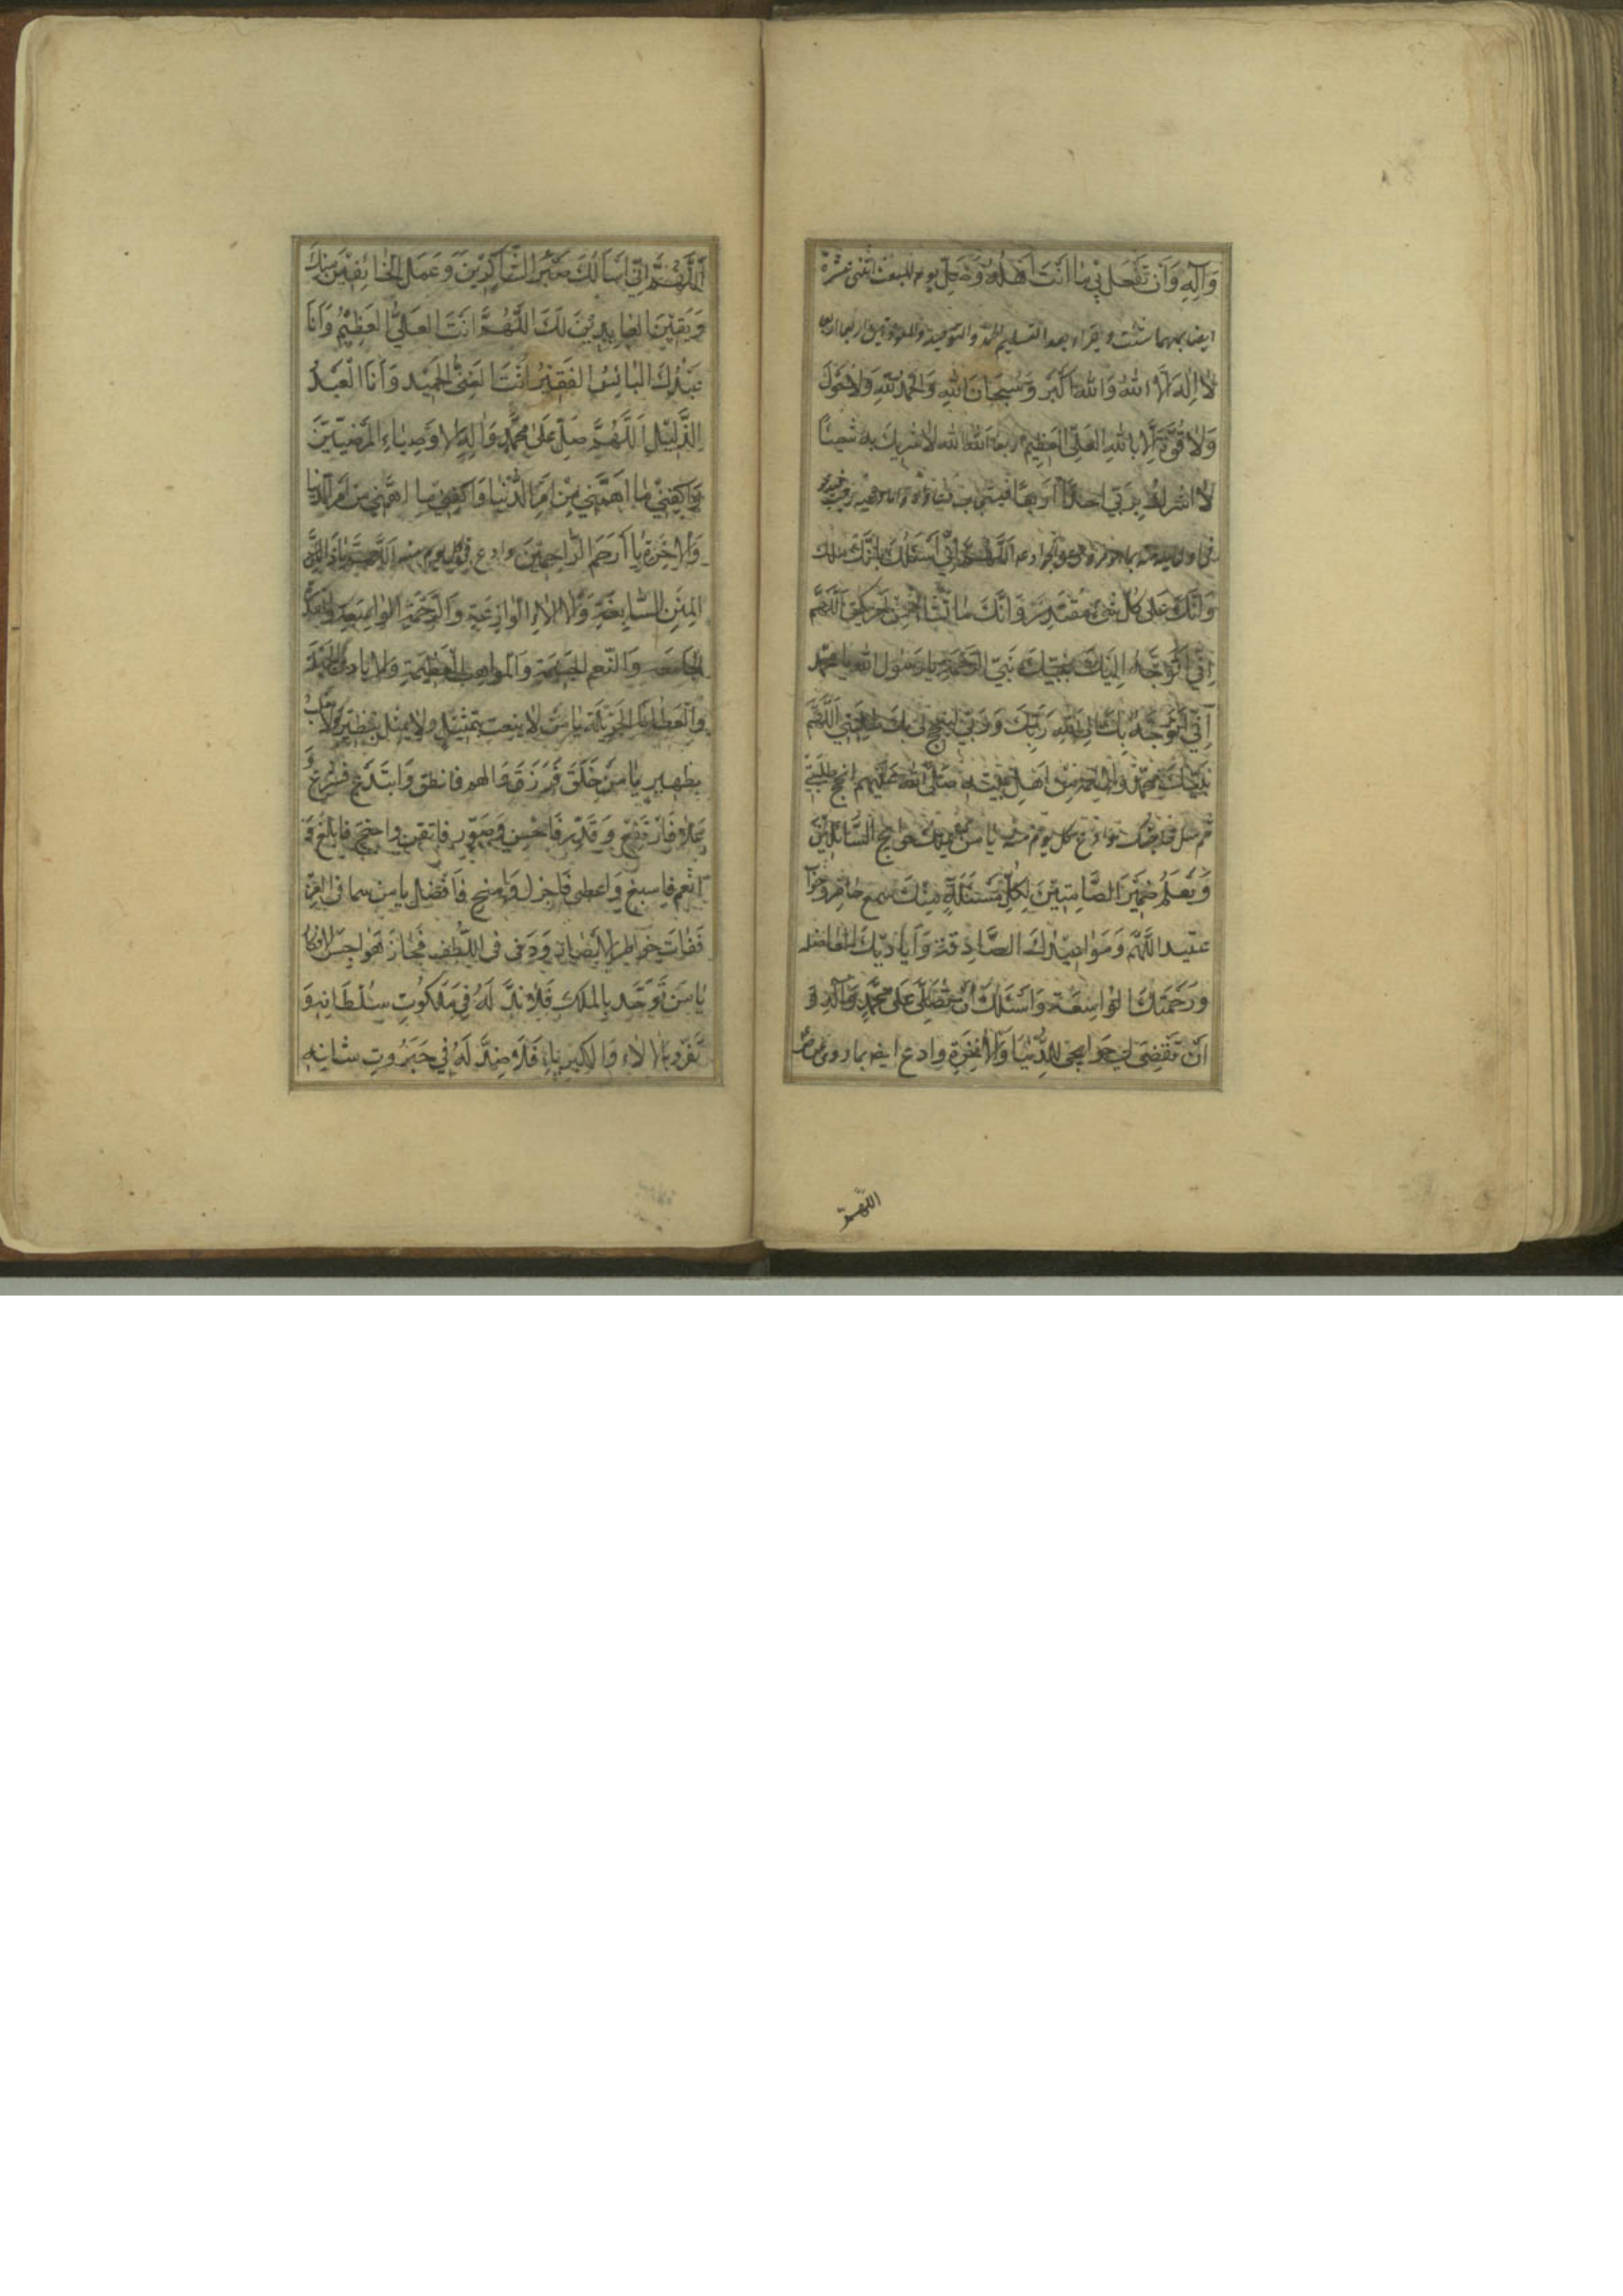 وَآلِهِ وَاَنْ تَفْعَلَ بِي مَا اَنْتَ اَهْلُهُ وَصَلِّ يوم المبعث اثنى عشرة
ايضا بمهما شئت و يقراء بعد التسليم الحمد والتوحيد والمعوذتين اربعا اربعا
لَا اِلٰهَ اِلَّا اللهُ وَاللهُ اَكْبَر وَسُبْحَانَ اللهِ وَالْحَمْدُ لِلّٰهِ وَلَا حَوْلَ
وَلَا قُوَّةَ اِلَّا بِاللهِ الْعَلِيِّ الْعَظِيْمِ اربعا اَللهُ اَلله لَا اشْرِك به شَيْئًا
لَا اُشْرِكُ بِرَبِّي اَحَدًا اَرْبَعًا
اَللّٰهُمَّ اِنِّي اَسْئَلُكَ بِاَنَّكَ ملك
وَاَنَّكَ عَلٰى كُلِّ شَيْءٍ مُقْتَدِرٌ وَاَنَّكَ مَا تَشَاءُ مِنْ اَمْرٍ يَكُن اَللّٰهُمَّ
اِنِّي اَتَوَجَّهُ اِلَيْكَ بِنَبِيِّكَ نَبِيِّ الرَّحْمَةِ يَا رَسُولَ اللهِ يا محمد
اِنِّي اَتَوَجَّهُ بِكَ اِلَى اللهِ رَبِّكَ وَرَبِّي لِيُنْجِحَ لِي بِكَ طَلِبَتِي اَللّٰهُمَّ
بِنَبِيِّكَ مُحَمَّدٍ وَالْاَئِمَّةِ مِنْ اَهْلِ بَيْتِهِ صَلَّى اللهُ عَلَيْهِم اَنْجِحْ طَلِبَتِي
كل يوم منه يا من يَمْلِكُ حَوَائِجَ السَّائِلِيْنَ
وَيَعْلَمُ ضَمِيْرَ الصَّامِتِيْنَ لِكُلِّ مَسْئَلَةٍ مِنْكَ سَمْعٌ حَاضِرٌ وَجَوَابٌ
عَتِيد اَللّٰهُمَّ وَمَوَاعِيْدُكَ الصَّادِقَةُ وَاَيَادِيْكَ الفاضلة
وَرَحْمَتُكَ الْوَاسِعَةُ وَاَسْئَلُكَ اَنْ تُصَلِّيَ عَلٰى مُحَمَّدٍ وَآلِهِ وَ
اَنْ تَقْضِيَ لِي حَوَائِجِي لِلدُّنْيَا وَالْاٰخِرَةِ وادع ايضا بما روى عن ص
اللّهمّ
اَللّٰهُمَّ اِنِّي اَسْاَلُكَ صَبْرَ الشَّاكِرِيْنَ وَعَمَلَ الْخَائِفِيْنَ مِنْكَ
وَيَقِيْنَ الْعَابِدِيْنَ لَكَ اَللّٰهُمَّ اَنْتَ الْعَلِيُّ الْعَظِيْمُ وَاَنَا
عَبْدُكَ الْبَائِسُ الْفَقِيْرُ اَنْتَ الْغَنِيُّ الْحَمِيْدُ وَاَنَا الْعَبْدُ
الذَّلِيْلُ اَللّٰهُمَّ صَلِّ عَلٰى مُحَمَّدٍ وَآلِهِ الْاَوْصِيَاءِ الْمَرْضِيِّيْنَ
وَاكْفِنِيْ مَا اَهَمَّنِي مِنْ اَمْرِ الدُّنْيَا وَاكْفِنِي مَا اَهَمَّنِي مِنْ اَمْرِ الدنيا
وَالْاٰخِرَةِ يَا اَرْحَمَ الرَّاحِمِيْنَ وادع في كل يوم منه اَللّٰهُمَّ يَا ذَا
الْمِنَنِ السَّابِغَةِ وَالْاٰلَاءِ الْوَازِعَةِ وَالرَّحْمَةِ الْوَاسِعَةِ وَالْقُدْرَةِ
الْجَامِعَةِ وَالنِّعَمِ الْجَسِيْمَةِ وَالْمَوَاهِبِ الْعَظِيْمَةِ وَالْاَيَادِي الْجَمِيلَةِ
وَالْعَطَايَا الْجَزِيْلَةِ يَا مَنْ لَا يُنْعَتُ بِتَمْثِيْلٍ وَلَا يُمَثَّلُ بِنَظِيْرٍ وَلَا يُغْلَبُ
بِظَهِيْرٍ يَا مَنْ خَلَقَ فَرَزَقَ وَالْهَم فَانْطَقَ وَابْتَدَعَ فَشَرَعَ وَ
عَلَا فَارْتَفَعَ وَقَدَّرَ فَاَحْسَنَ وَصَوَّرَ فَاَتْقَنَ وَاحْتَجَّ فَاَبْلَغَ وَ
اَنْعَمَ فَاَسْبَغَ وَاَعْطٰى فَاَجْزَلَ وَمَنَحَ فَاَفْضَلَ يَا مَنْ سَمَا فِي الْعِزِّ
فَفَاتَ خَوَاطِرَ الْاَبْصَارِ وَدَنٰى فِي اللُّطْفِ فَجَازَ هَوَاجِسَ الْاَفْكَارِ
يَا مَنْ تَوَحَّدَ بِالْمُلْكِ فَلَا نِدَّ لَهُ فِي مَلَكُوتِ سُلْطَانِهِ وَ
تَفَرَّدَ بِالْاٰلَاءِ وَالْكِبْرِيَاءِ فَلَا ضِدَّ لَهُ فِي جَبَرُوتِ شَانِهِ